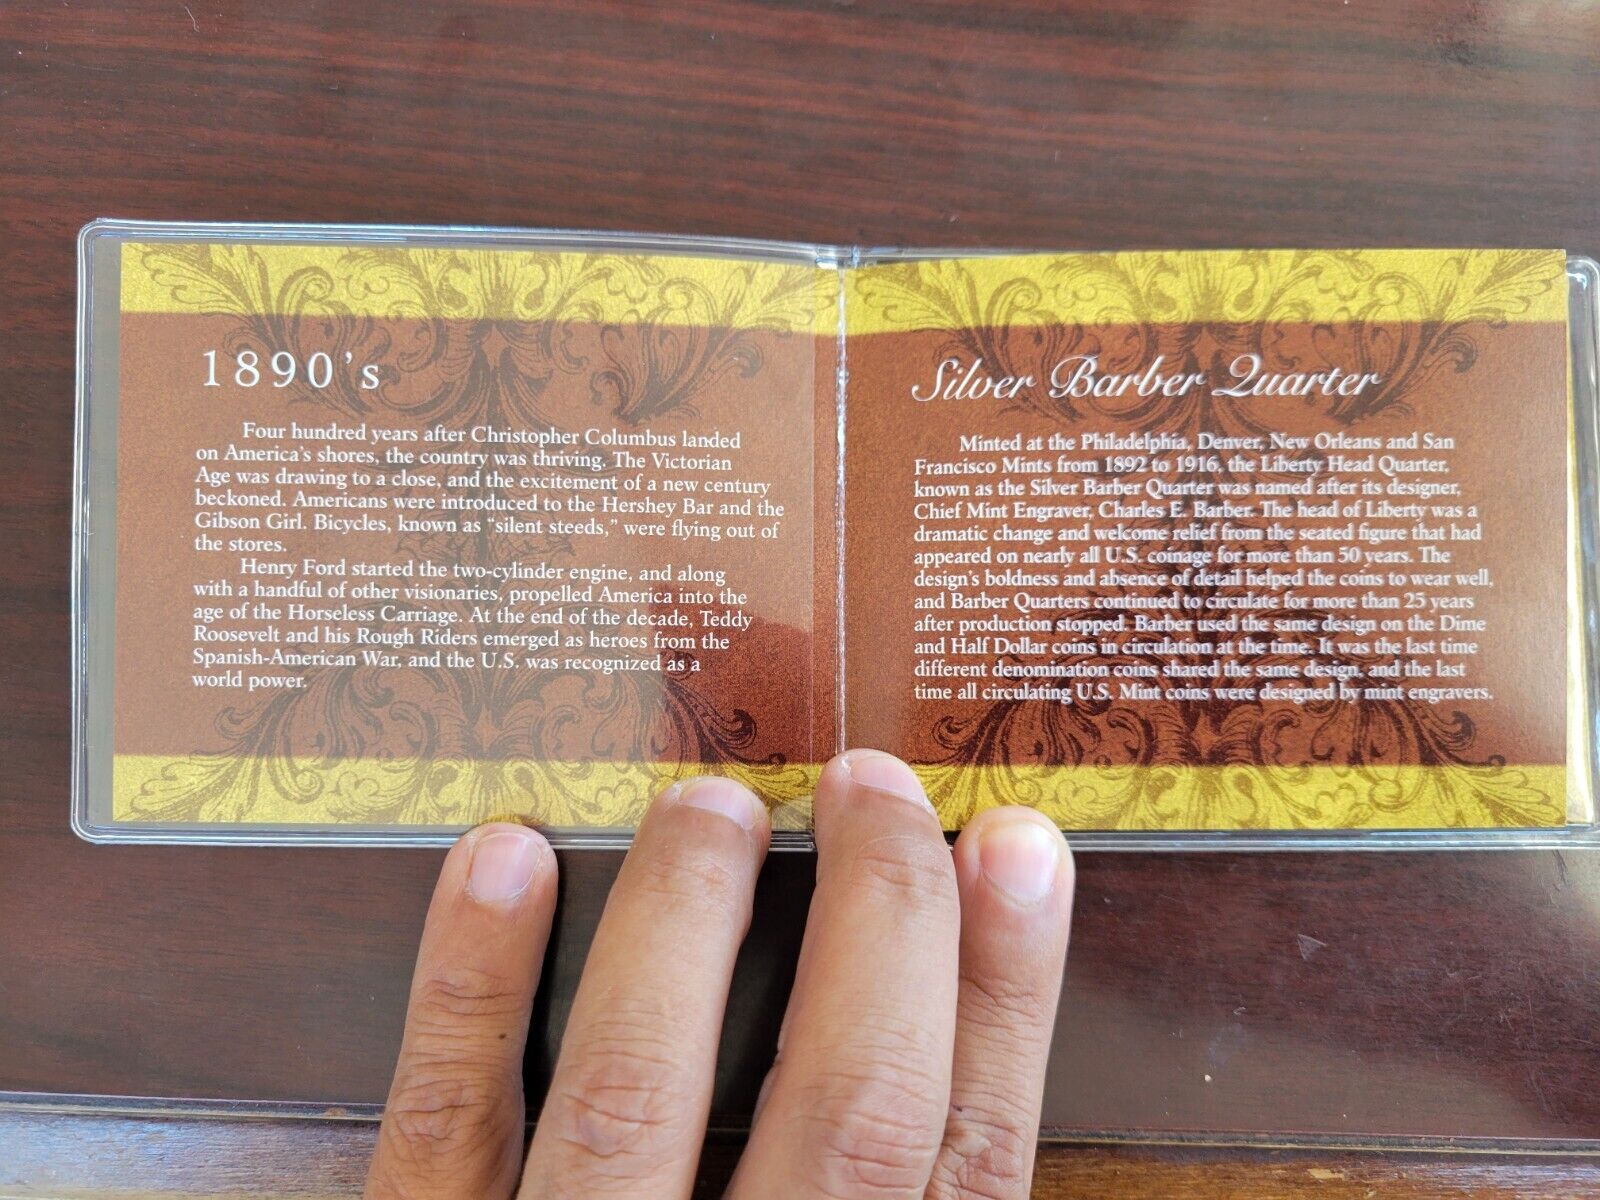 1890's
Four hundred years after Christopher Columbus landed
on America's shores, the country was thriving. The Victorian
Age was drawing to a close, and the excitement of a new century
beckoned. Americans were introduced to the Hershey Bar and the
Gibson Girl. Bicycles, known as "silent steeds," were flying out of
the stores.
Henry Ford started the two-cylinder engine, and along
with a handful of other visionaries, propelled America into the
age of the Horseless Carriage. At the end of the decade, Teddy
Roosevelt and his Rough Riders emerged as heroes from the
Spanish-American War, and the U.S. was recognized as a
world power.
Silver Barber Quarter
Minted at the Philadelphia, Denver, New Orleans and San
Francisco Mints from 1892 to 1916, the Liberty Head Quarter,
known as the Silver Barber Quarter was named after its designer,
Chief Mint Engraver, Charles E. Barber. The head of Liberty was a
dramatic change and welcome relief from the seated figure that had
appeared on nearly all U.S. coinage for more than 50 years. The
design's boldness and absence of detail helped the coins to wear well,
and Barber Quarters continued to circulate for more than 25 years
after production stopped. Barber used the same design on the Dime
and Half Dollar coins in circulation at the time. It was the last time
different denomination coins shared the same design, and the last
time all circulating U.S. Mint coins were designed by mint engravers.